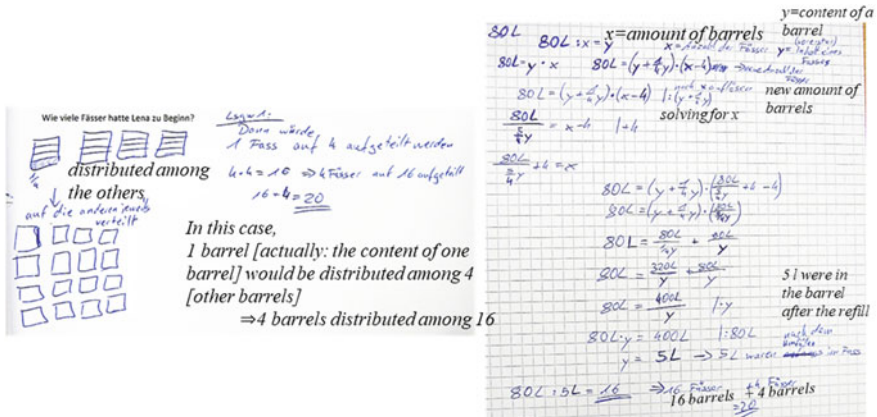 Wie viele Fässer hatte Lena zu Beginn?
distributed among
the others
auf die anderen jeweils
verteilt
Lsgw 1:
Dann würde
1 Fass auf 4 aufgeteilt werden
4·4=16 ⇒ 4 Fässer auf 16 aufgeteilt
16+4=20
In this case,
1 barrel [actually: the content of one
barrel] would be distributed among 4
[other barrels]
⇒4 barrels distributed among 16
y=content of a
barrel
80L
80L : x = y
x=amount of barrels
x = Anzahl der Fässer y= Inhalt eines
Fasses
80L = y · x
80L = (y + 1/4 y) · (x-4)
80L = (y + 1/4 y) · (x-4) | : (y + 1/4 y)
new amount of
barrels
solving for x
80L / 5/4 y = x-4 | +4
80L / 5/4 y + 4 = x
80L = (y + 1/4 y) · (80L / 5/4 y + 4 - 4)
80L = (y + 1/4 y) · (80L / 5/4 y)
80L = 80L / 1/4 y + 80L / y
80L = 320L / y + 80L / y
80L = 400L / y | · y
80L · y = 400L | : 80L
y = 5L → 5L waren im Fass
nach dem
Umfüllen
5 l were in
the barrel
after the refill
80L : 5L = 16 ⇒ 16 Fässer +4 Fässer
16 barrels + 4 barrels
=20